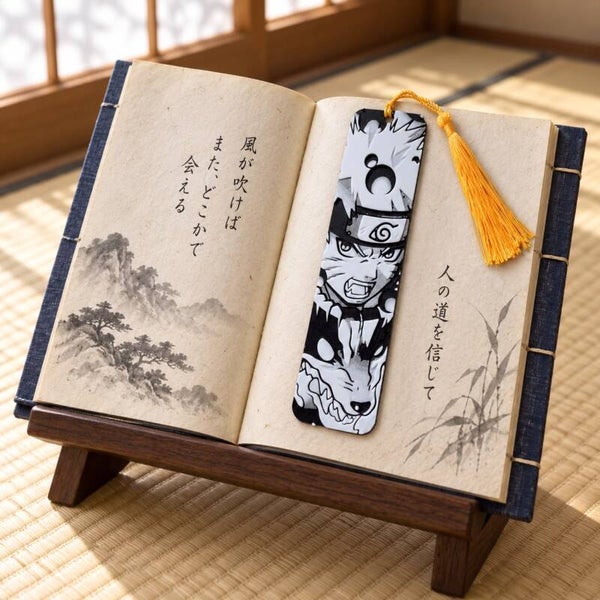 風が吹けば
また、どこかで
会える
人の道を信じて